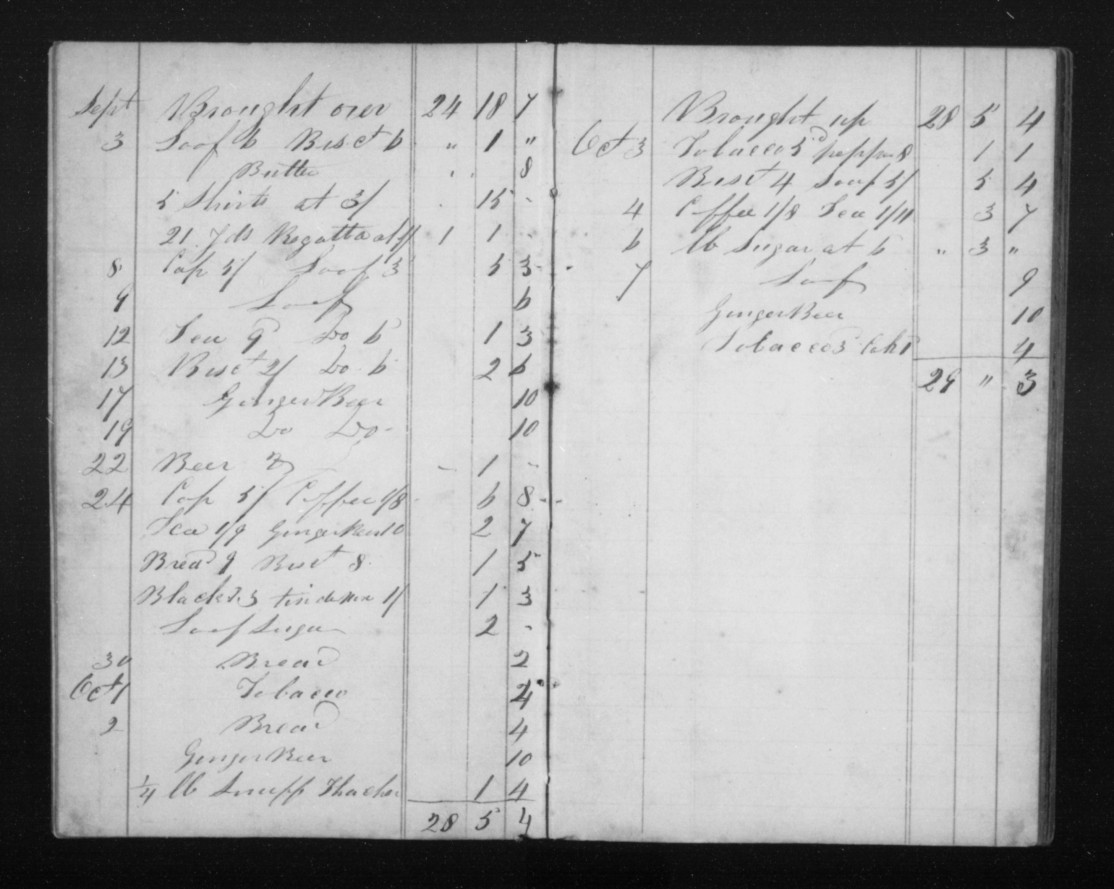 Sept Brought over 24 18 7
3 Loaf 6 Bisct 6 " 1 "
Butter " . 8
5 Shirts at 3/ 15 -
21 yds Regatta at 1/ 1 1 -
8 Cap 5/ Loaf 3 5 3
9 Loaf 6
12 Tea 9 Do 6 1 3
13 Bisct 2/ Do 6 2 6
17 Ginger Beer 10
19 Do Do 10
22 Beer - 1 -
24 Cap 5/ Coffee 1/8 6 8
Tea 1/9 Ginger Beer 10 2 7
Bread 9 Bisct 8 1 5
Black 3 1/ 1 3
Loaf Sugar 2 -
30 Bread 2
Oct 1 Tobacco 4
2 Bread 4
Ginger Beer 10
1/4 lb Snuff 1 4
28 5 4
Brought up 28 5 4
Oct 3 Tobacco 5d pepper 8 1 1
Bisct 4 5/ 5 4
4 Coffee 1/8 Tea 1/11 3 7
6 lb Sugar at 6 " 3 "
7 Loaf 9
Ginger Beer 10
Tobacco 3 1 4
29 " 3